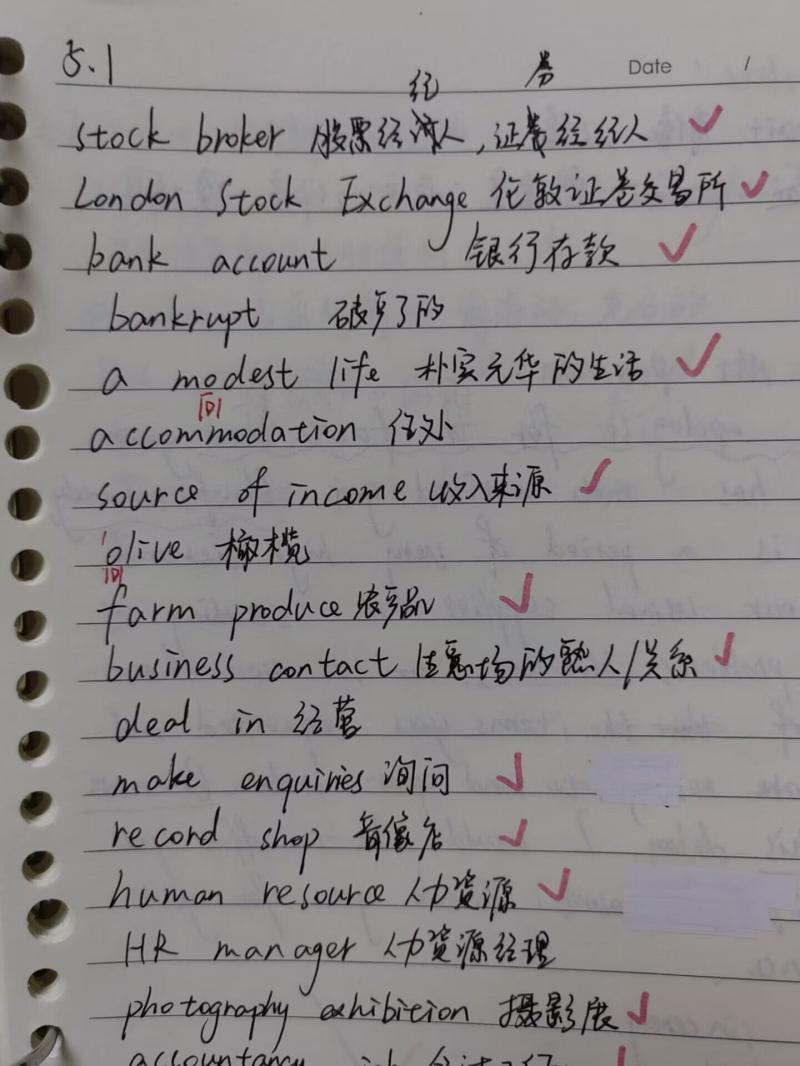 5.1
纪 券 Date /
stock broker 股票经济人,证券经纪人
London Stock Exchange 伦敦证卷交易所
bank account 银行存款
bankrupt 破产了的
a modest life 朴实无华的生活
accommodation 住处
source of income 收入来源
olive 橄榄
farm produce 农产品
business contact 生意场的熟人/关系
deal in 经营
make enquiries 询问
record shop 音像店
human resource 人力资源
HR manager 人力资源经理
photography exhibition 摄影展
accountancy